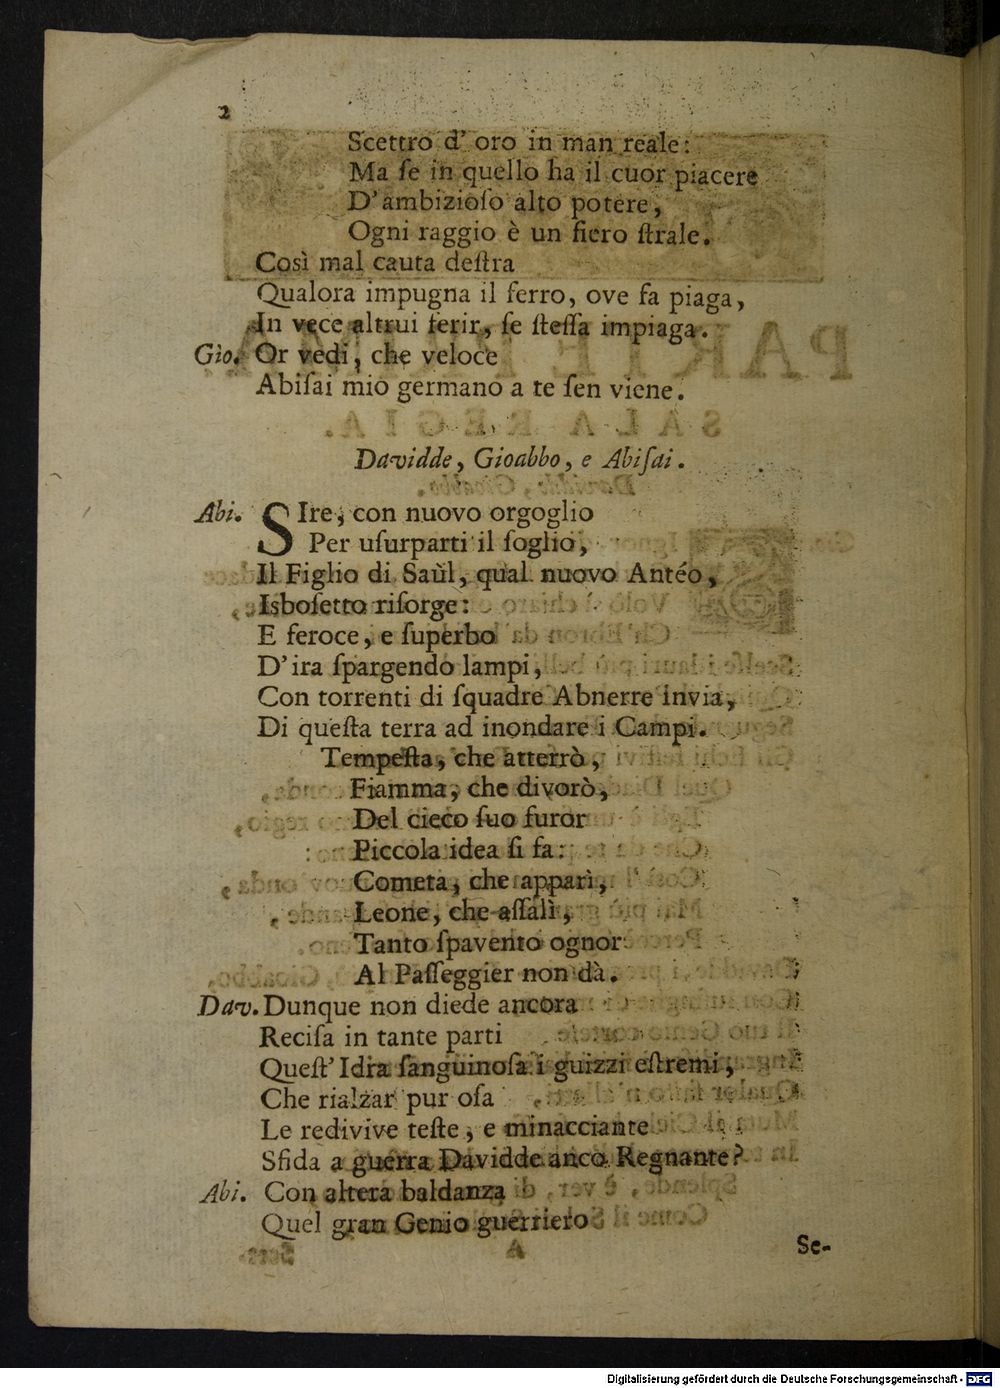 2
Scettro d' oro in man reale:
Ma ſe in quello ha il cuor piacere
D'ambizioſo alto potere,
Ogni raggio è un fiero ſtrale.
Così mal cauta deſtra
Qualora impugna il ferro, ove fa piaga,
In vece altrui ferir, ſe ſteſſa impiaga.
Gio. Or vedi, che veloce
Abiſai mio germano a te ſen viene.
Davidde, Gioabbo, e Abiſai.
Abi. SIre, con nuovo orgoglio
Per uſurparti il ſoglio,
Il Figlio di Saùl, qual nuovo Antéo,
Isboſetto riſorge:
E feroce, e ſuperbo
D'ira ſpargendo lampi,
Con torrenti di ſquadre Abnerre invia,
Di queſta terra ad inondare i Campi.
Tempeſta, che atterrò,
Fiamma, che divorò,
Del cieco ſuo furor
Piccola idea ſi fa:
Cometa, che apparì,
Leone, che aſſalì,
Tanto ſpavento ognor
Al Paſſeggier non dà.
Dav. Dunque non diede ancora
Reciſa in tante parti
Queſt' Idra ſanguinoſa i guizzi eſtremi,
Che rialzar pur oſa
Le redivive teſte, e minacciante
Sfida a guerra Davidde anco Regnante?
Abi. Con altera baldanza
Quel gran Genio guerriero
Se-
Digitalisierung gefördert durch die Deutsche Forschungsgemeinschaft - DFG